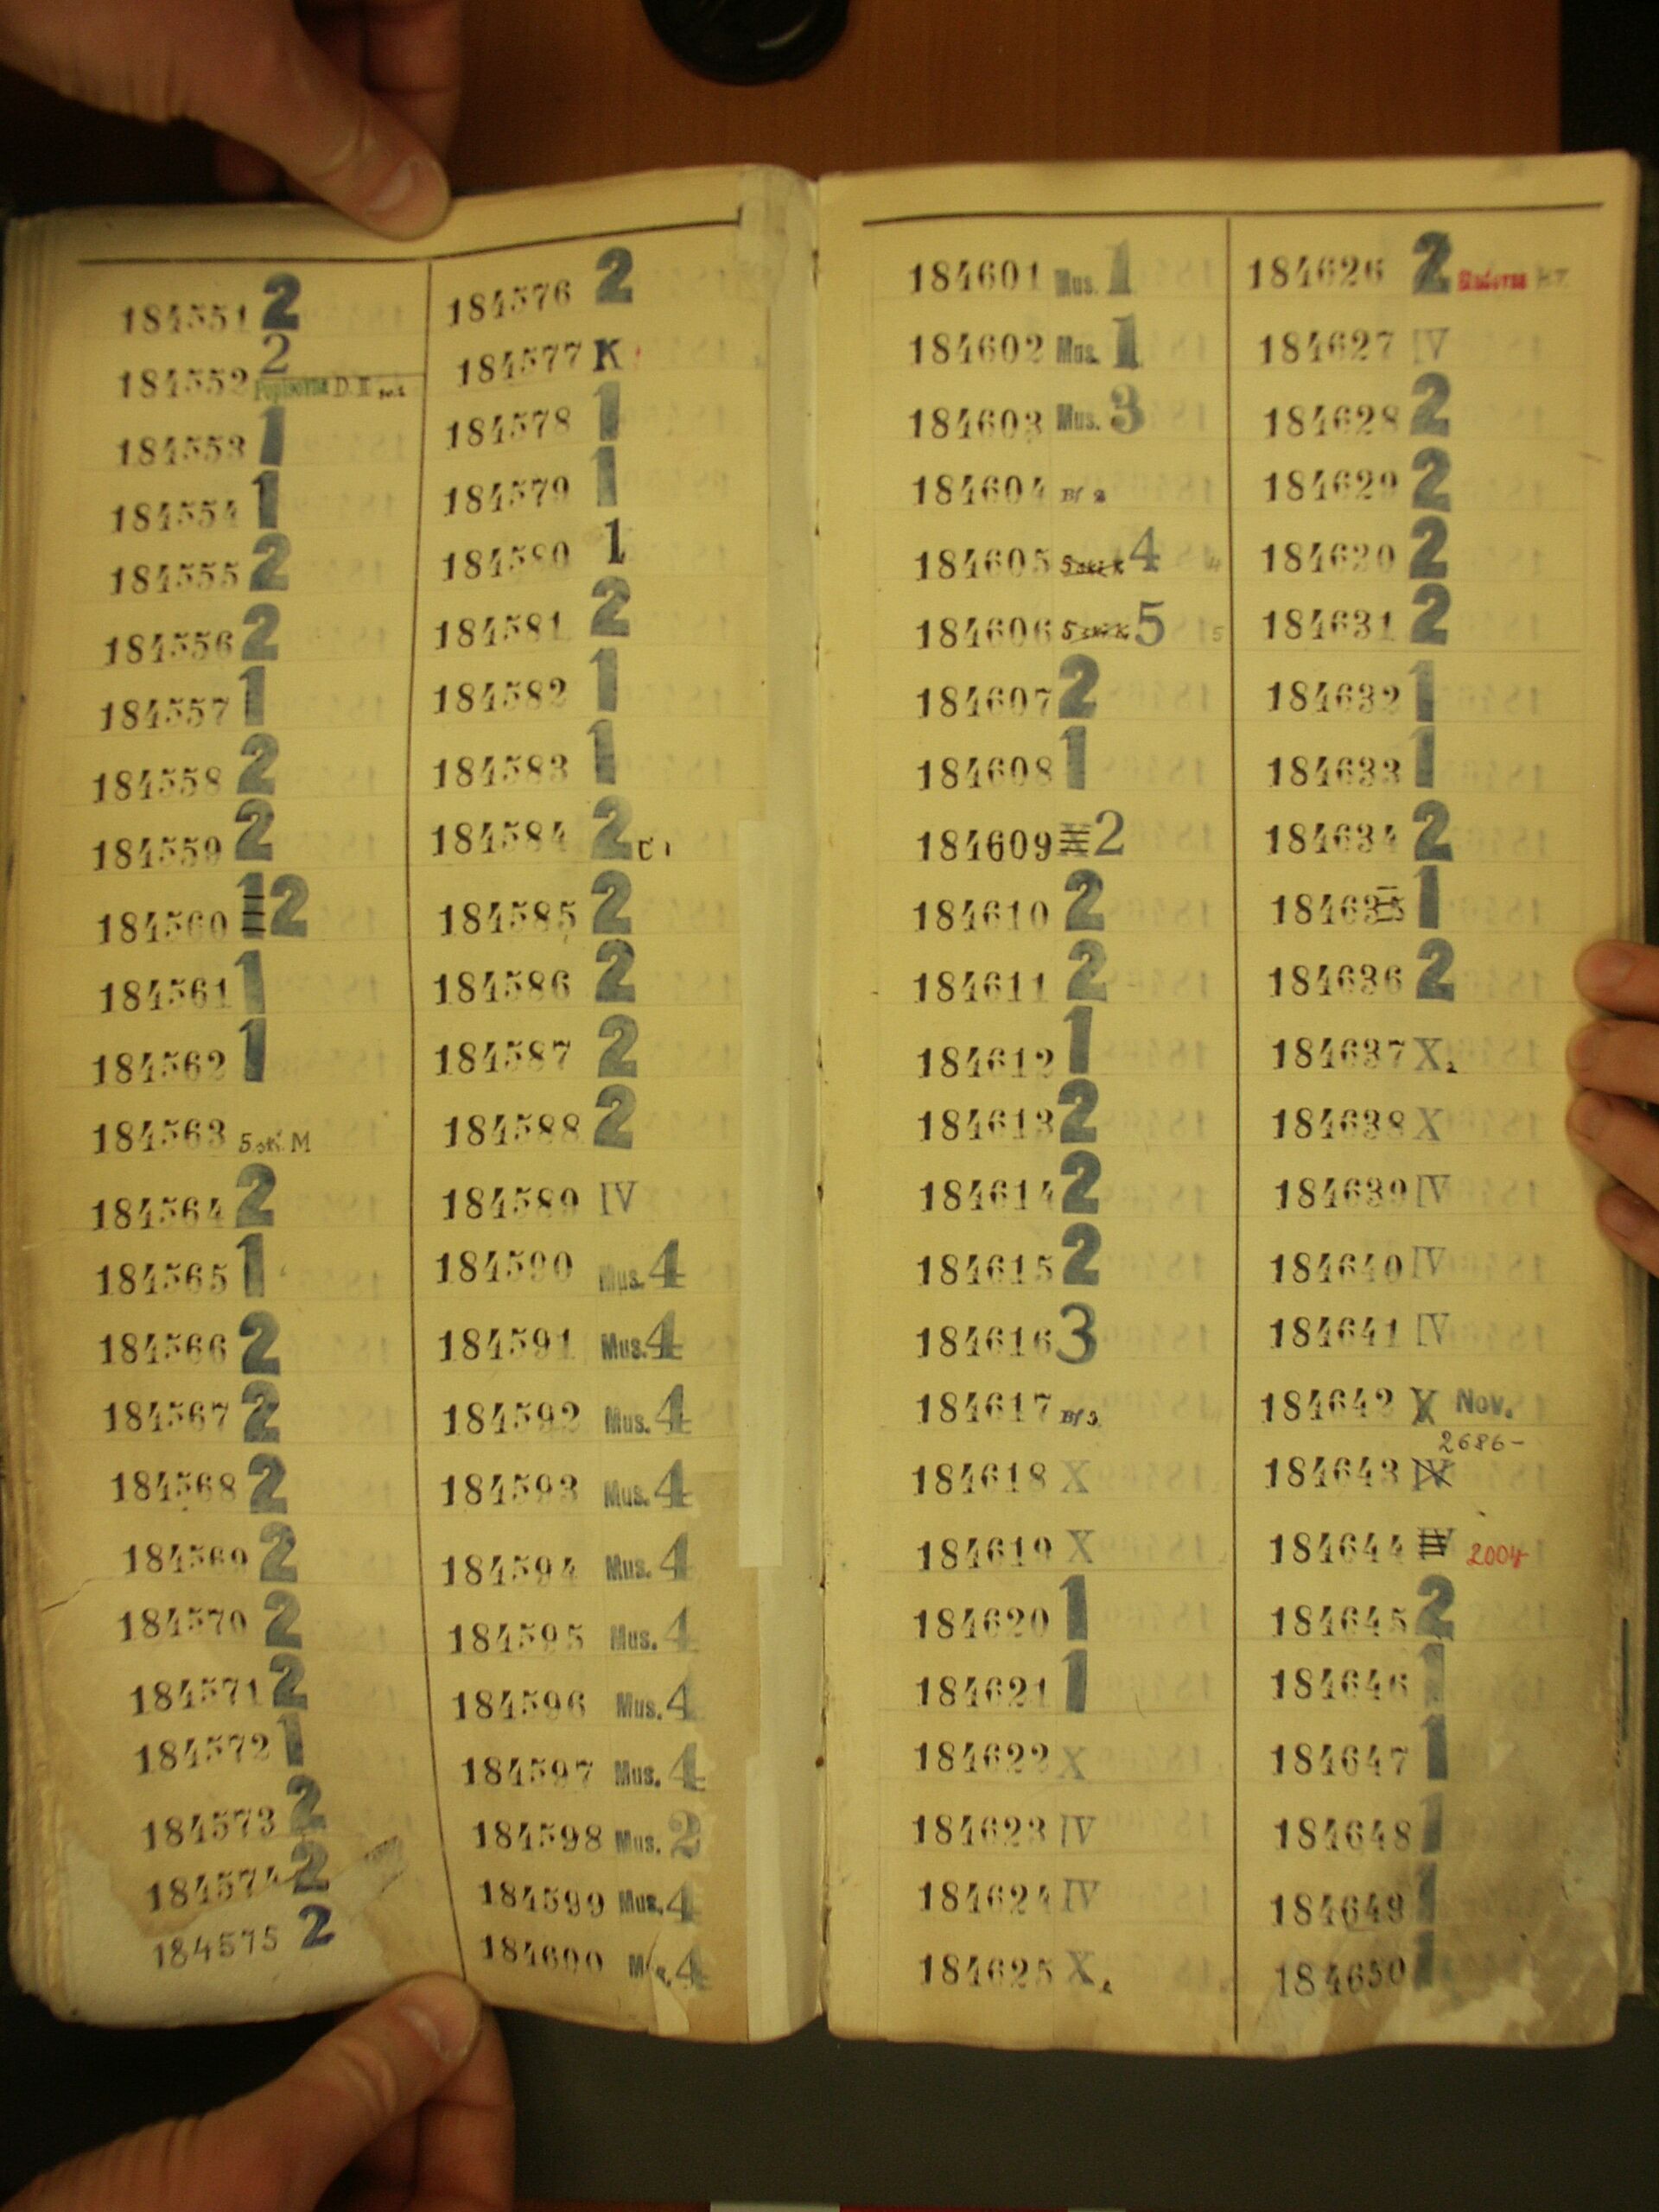 184551 2
2
184552 D. II
184553 1
184554 1
184555 2
184556 2
184557 1
184558 2
184559 2
184560 1 2
184561 1
184562 1
184563 M
184564 2
184565 1
184566 2
184567 2
184568 2
184569 2
184570 2
184571 2
184572 1
184573 2
184574 2
184575 2
184576 2
184577 K
184578 1
184579 1
184580 1
184581 2
184582 1
184583 1
184584 2
184585 2
184586 2
184587 2
184588 2
184589 IV
184590 Mus. 4
184591 Mus. 4
184592 Mus. 4
184593 Mus. 4
184594 Mus. 4
184595 Mus. 4
184596 Mus. 4
184597 Mus. 4
184598 Mus. 2
184599 Mus. 4
184600 Mus. 4
184601 Mus. 1
184602 Mus. 1
184603 Mus. 3
184604
184605 4
184606 5
184607 2
184608 1
184609 X 2
184610 2
184611 2
184612 1
184613 2
184614 2
184615 2
184616 3
184617
184618 X
184619 X
184620 1
184621 1
184622 X
184623 IV
184624 IV
184625 X
184626 2
184627 IV
184628 2
184629 2
184630 2
184631 2
184632 1
184633 1
184634 2
184635 1
184636 2
184637 X
184638 X
184639 IV
184640 IV
184641 IV
184642 X Nov.
2686-
184643 IV
184644 IV 2004
184645 2
184646 1
184647 1
184648 1
184649 1
184650 1